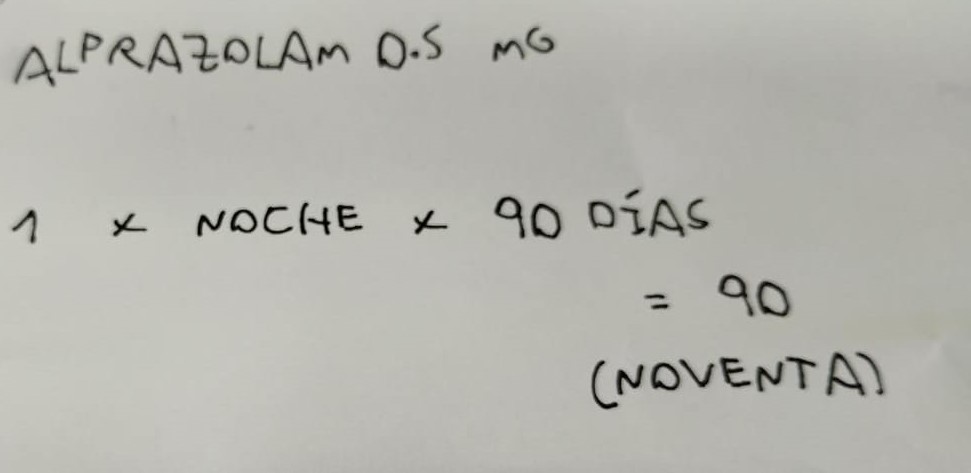 ALPRAZOLAM 0.5 MG
1 x NOCHE x 90 DÍAS
= 90
(NOVENTA)